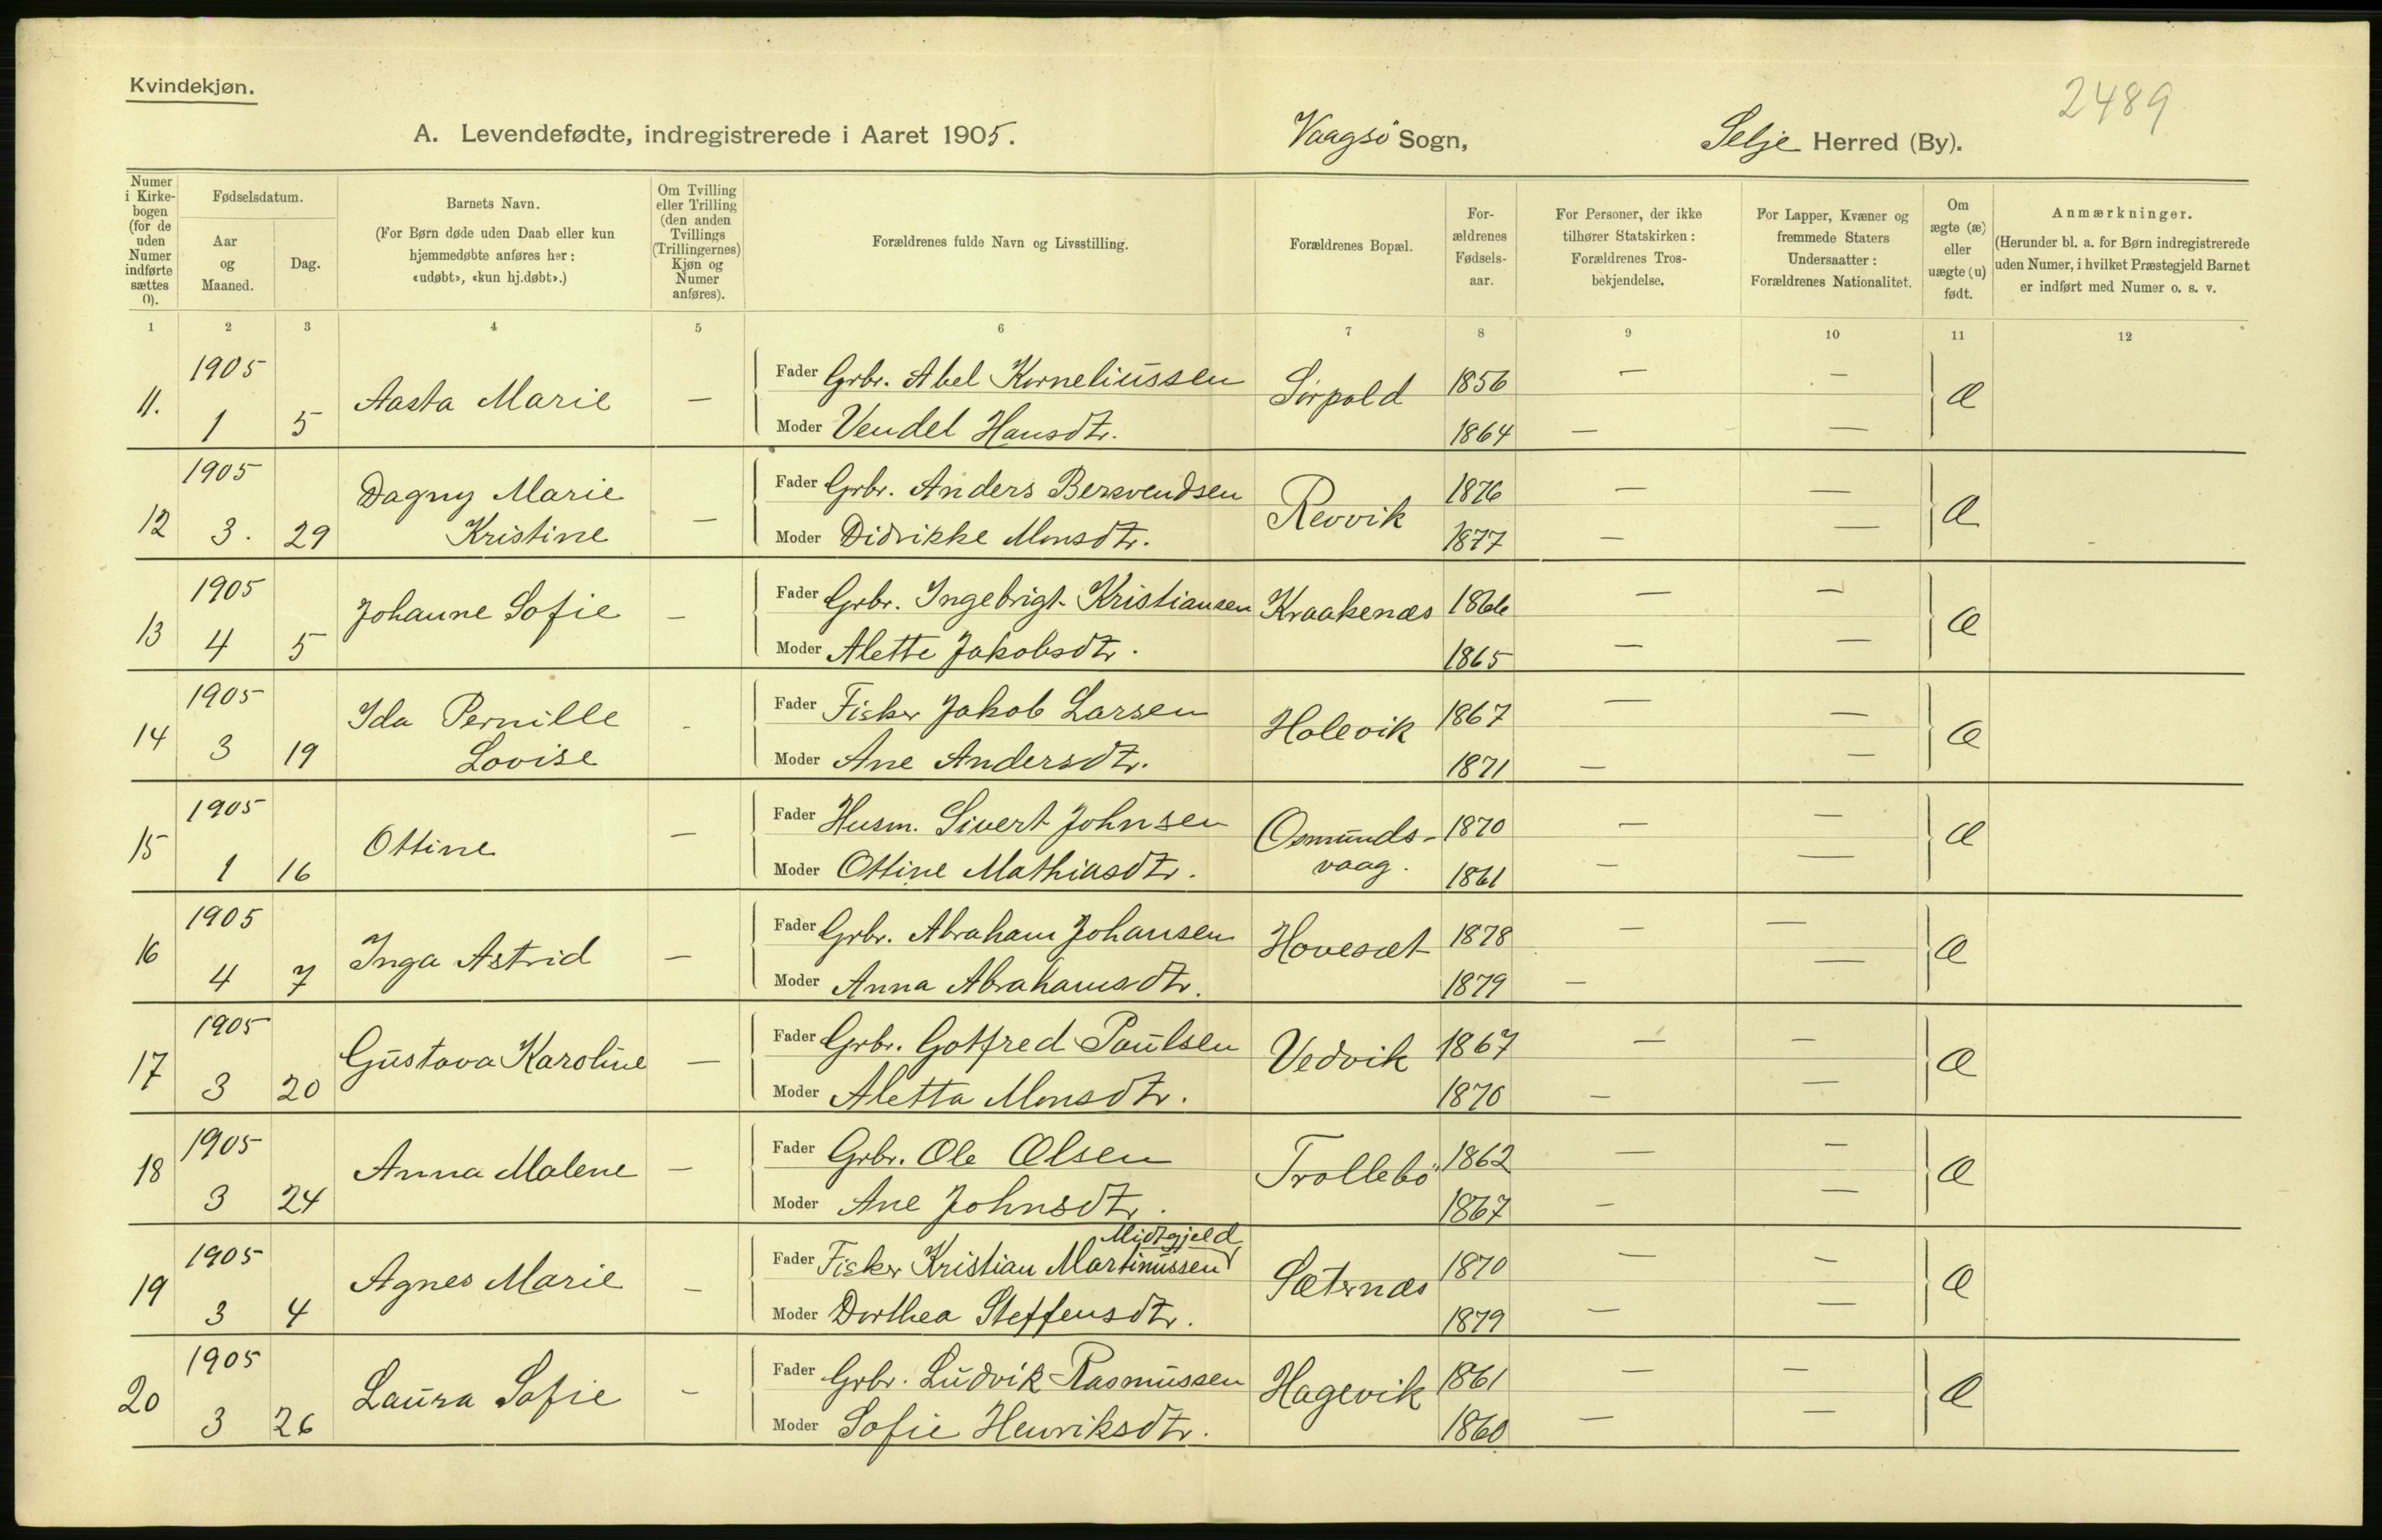 Kvindekjøn.
2489
A. Levendefødte, indregistrerede i Aaret 1905. Vaagsö Sogn, Selje Herred (By).
Numer i Kirke-bogen (for de uden Numer indførte sættes 0).
Fødselsdatum.
Aar og Maaned.
Dag.
Barnets Navn.
(For Børn døde uden Daab eller kun
hjemmedøbte anføres her:
«udøbt», «kun hj.døbt».)
Om Tvilling
eller Trilling
(den anden
Tvillings
(Trillingernes)
Kjøn og
Numer
anføres).
Forældrenes fulde Navn og Livsstilling.
Forældrenes Bopæl.
For-
ældrenes
Fødsels-
aar.
For Personer, der ikke
tilhører Statskirken:
Forældrenes Tros-
bekjendelse.
For Lapper, Kvæner og
fremmede Staters
Undersaatter:
Forældrenes Nationalitet.
Om
ægte (æ)
eller
uægte (u)
født.
Anmærkninger.
(Herunder bl. a. for Børn indregistrerede
uden Numer, i hvilket Præstegjeld Barnet
er indført med Numer o. s. v.
1 2 3 4 5 6 7 8 9 10 11 12
11. 1905 1 5 Aasta Marie — Fader Grbr. Abel Korneliussen Sörpold 1856 — — Æ
Moder Vendel Hansdtr. 1864 — —
12 1905 3. 29 Dagny Marie Kristine — Fader Grbr. Anders Bersvendsen Revvik 1876 — — Æ
Moder Didrikke Monsdtr. 1877 — —
13 1905 4 5 Johanne Sofie — Fader Grbr. Ingebrigt Kristiansen Kraakenæs 1866 — — Æ
Moder Alette Jakobsdtr. 1865 — —
14 1905 3 19 Ida Pernille Lovise - Fader Fisker Jakob Larsen Holevik 1867 — — Æ
Moder Ane Andersdtr. 1871 — —
15 1905 1 16 Ottine — Fader Husm. Sivert Johnsen Osmunds-vaag. 1870 — — Æ
Moder Ottine Mathiasdtr. 1861 — —
16 1905 4 7 Inga Astrid — Fader Grbr. Abraham Johansen Hovesæt 1878 — — Æ
Moder Anna Abrahamsdtr. 1879 — —
17 1905 3 20 Gustava Karoline — Fader Grbr. Gotfred Paulsen Vedvik 1867 — — Æ
Moder Aletta Monsdtr. 1870 — —
18 1905 3 24 Anna Malene — Fader Grbr. Ole Olsen Trollebö 1862 — — Æ
Moder Ane Johnsdtr. 1867 — —
19 1905 3 4 Agnes Marie — Fader Fisker Kristian Martinussen Midtgjeld Sæternæs 1870 — — Æ
Moder Dorthea Steffensdtr. 1879 — —
20 1905 3 26 Laura Sofie — Fader Grbr. Ludvik Rasmussen Hagevik 1861 — — Æ
Moder Sofie Henriksdtr. 1860 — —